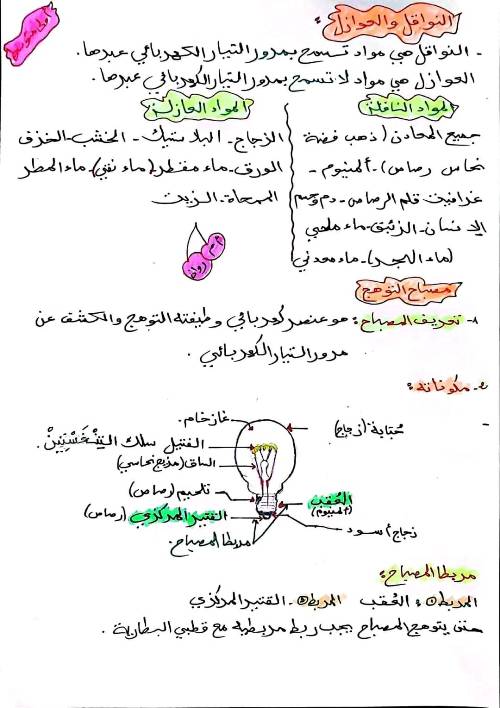 النواقل والعوازل :
أولى متوسط
- النواقل هي مواد تسمح بمرور التيار الكهربائي عبرها.
العوازل هي مواد لا تسمح بمرور التيار الكهربائي عبرها.
المواد الناقلة
جميع المعادن (ذهب فضة
نحاس رصاص) - ألمنيوم -
غرافيت قلم الرصاص - دم وجسم
الإنسان - الزئبق - ماء ملحي
(ماء البحر) - ماء معدني
المواد العازلة
الزجاج - البلاستيك - الخشب - الخزف
الورق - ماء مقطر (ماء نقي) - ماء المطر
الممحاة - الزيت
مصباح التوهج
1- تعريف المصباح : هو عنصر كهربائي وظيفته التوهج والكشف عن
مرور التيار الكهربائي .
2- مكوناته :
غاز خام.
حبابة (زجاج)
الفتيل سلك التِنْغَسْتِينْ.
الساق (مزيج نحاسي)
تلحيم (رصاص)
العُقب
(ألمنيوم)
القتير المركزي (رصاص)
زجاج أسود
مربطا المصباح.
مربطا المصباح :
المربط ① : العُقب المربط ② - القتير المركزي
حتى يتوهج المصباح يجب ربط مربطيه مع قطبي البطارية .